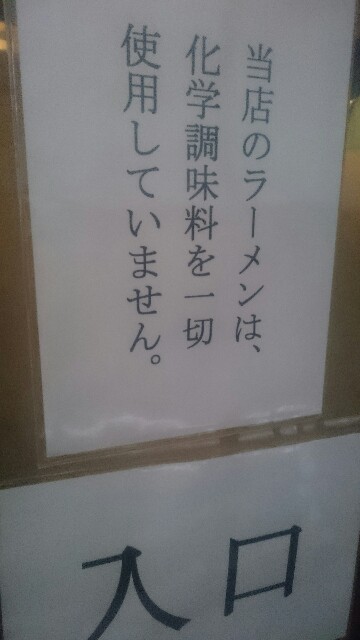 当店のラーメンは、
化学調味料を一切
使用していません。
入口